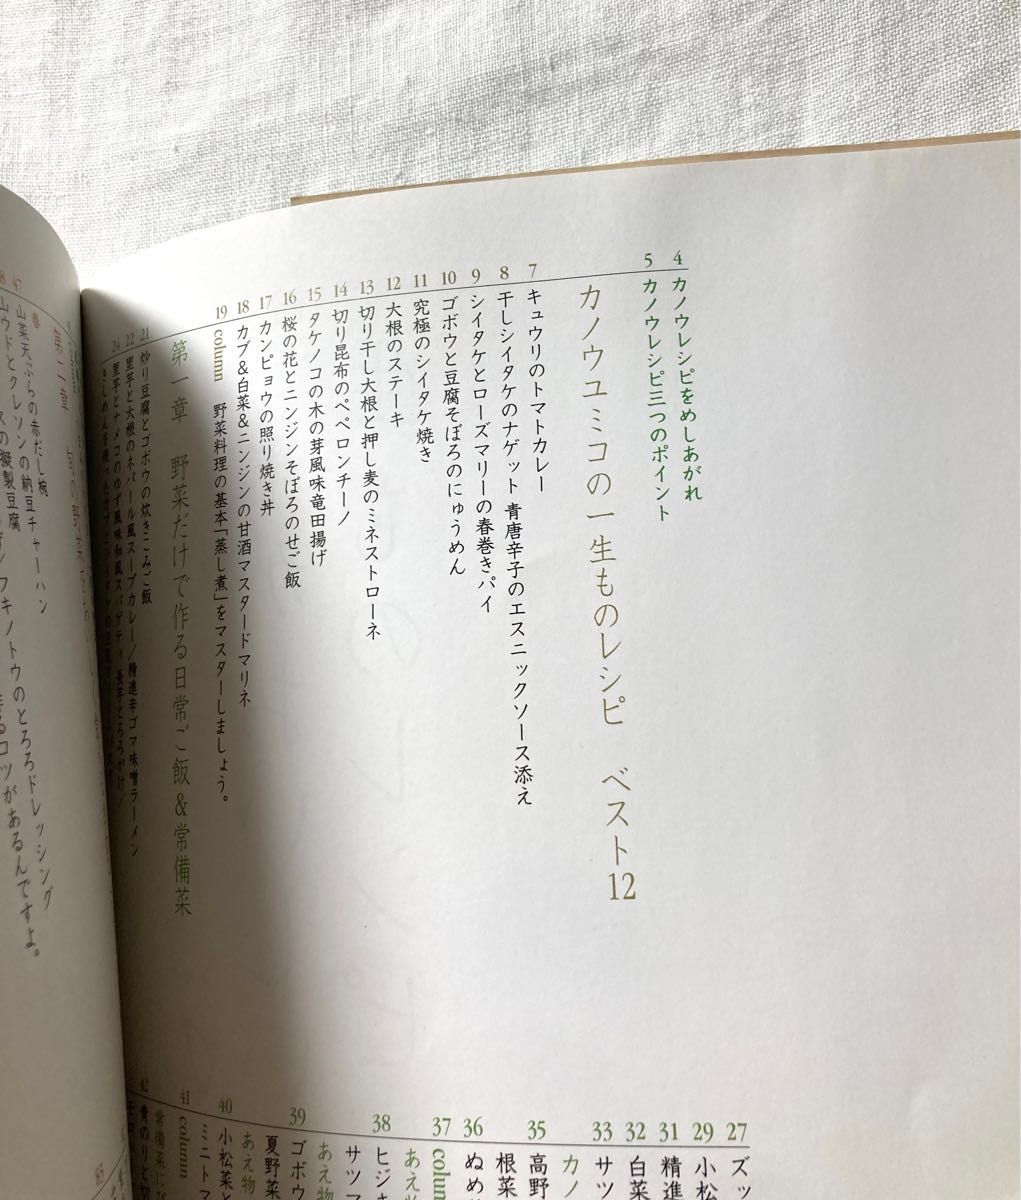 4 カノウレシピをめしあがれ
5 カノウレシピ三つのポイント
カノウユミコの一生ものレシピ ベスト12
7 キュウリのトマトカレー
8 干しシイタケのナゲット 青唐辛子のエスニックソース添え
9 シイタケとローズマリーの春巻きパイ
10 ゴボウと豆腐そぼろのにゅうめん
11 究極のシイタケ焼き
12 大根のステーキ
13 切り干し大根と押し麦のミネストローネ
14 切り昆布のペペロンチーノ
15 タケノコの木の芽風味竜田揚げ
16 桜の花とニンジンそぼろのせご飯
17 カンピョウの照り焼き丼
18 カブ&白菜&ニンジンの甘酒マスタードマリネ
19 column 野菜料理の基本「蒸し煮」をマスターしましょう。
第一章 野菜だけで作る日常ご飯&常備菜
21 炒り豆腐とゴボウの炊きこみご飯
22 里芋と大根のネパール風スープカレー/精進辛ゴマ味噌ラーメン
24 里芋とナメコのゆず風味和風スパゲティ 長芋とろろがけ/
27 ズッ
29 小松
31 精進
32 白菜
33 サツ
カノ
35 高野
根菜
36 ぬめ
37 colum
あえ
38 ヒジキ
サツマ
あえ物
39 ゴボウ
夏野菜
あえ物
40 小松菜と
ミニトマ
41 column
42 青のりと
47
春
山菜天ぷらの赤だし椀
山ウドとクレソンの納豆チャーハン
フキノトウのとろろドレッシング
の擬製豆腐
コツがあるんですよ。
第二章 旬の野菜